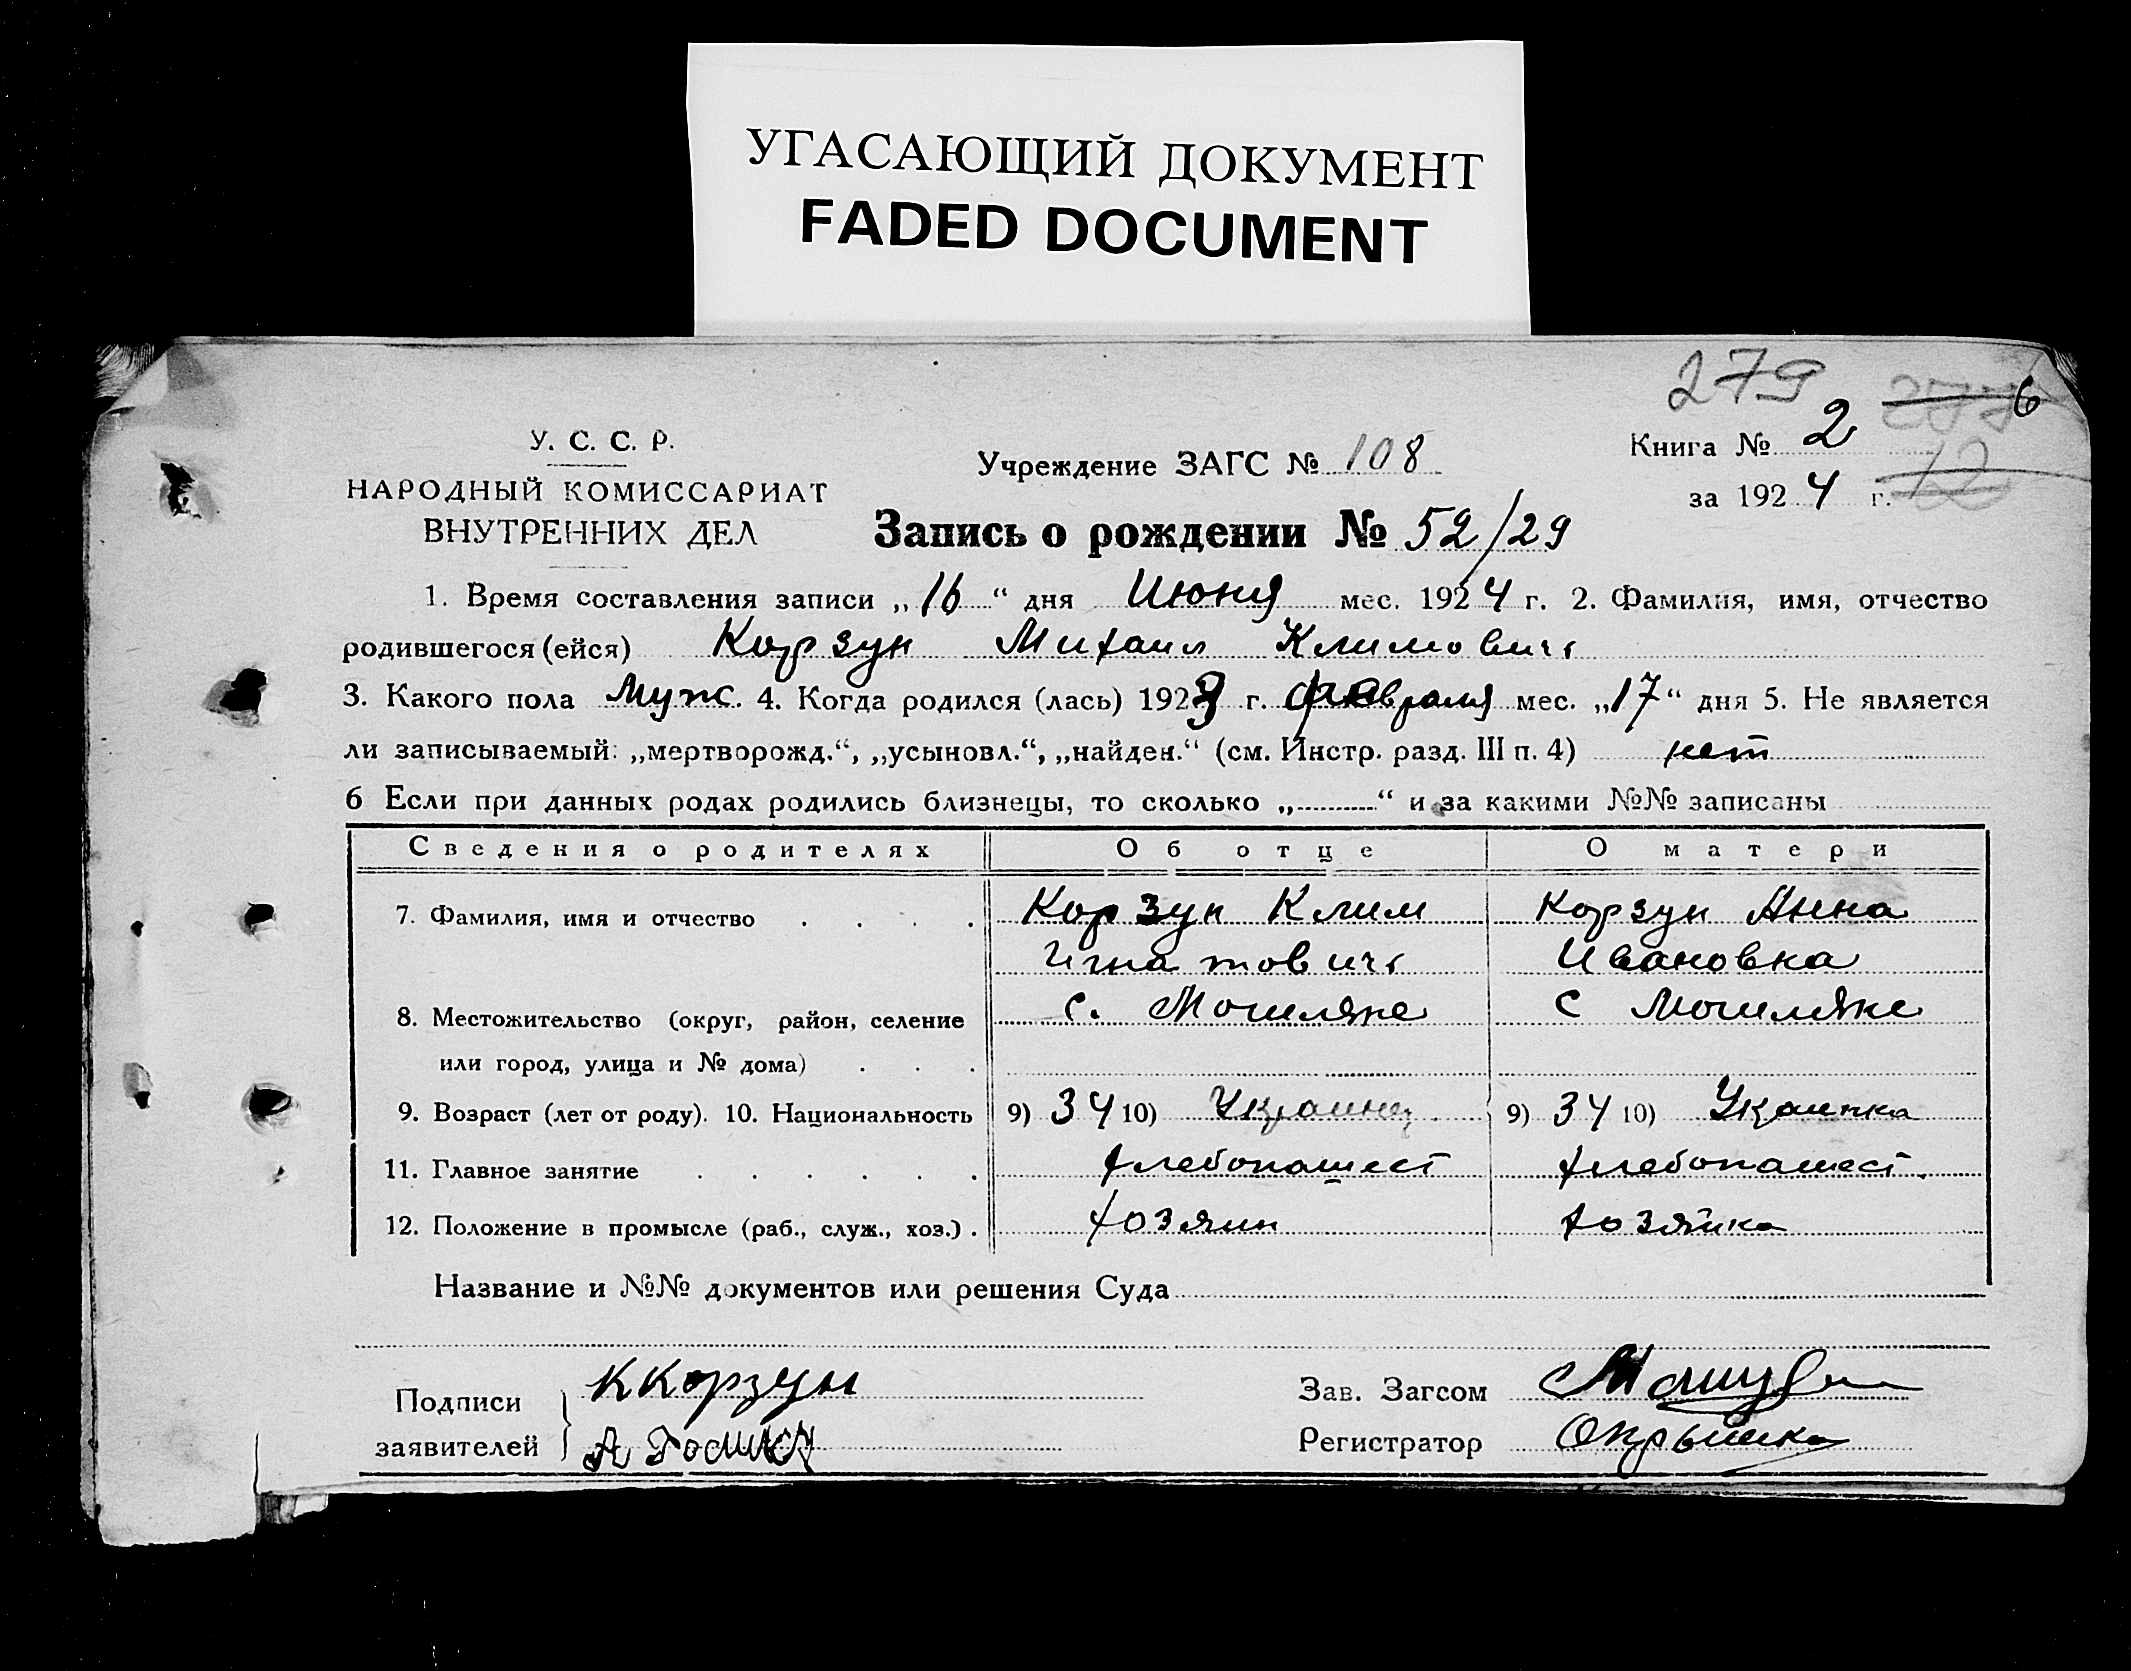 УГАСАЮЩИЙ ДОКУМЕНТ
FADED DOCUMENT
279
6
У. С. С. Р.
НАРОДНЫЙ КОМИССАРИАТ
ВНУТРЕННИХ ДЕЛ
Учреждение ЗАГС № 108
Книга № 2
за 1924 г. 12
Запись о рождении № 52/29
1. Время составления записи „16“ дня Июня мес. 1924 г. 2. Фамилия, имя, отчество
родившегося (ейся) Корзун Михаил Климович
3. Какого пола Муж. 4. Когда родился (лась) 1923 г. февраля мес. „17“ дня 5. Не является
ли записываемый: „мертворожд.“, „усыновл.“, „найден.“ (см. Инстр. разд. III п. 4) нет
6 Если при данных родах родились близнецы, то сколько „ “ и за какими №№ записаны
Сведения о родителях Об отце О матери
7. Фамилия, имя и отчество Корзун Клим Корзун Анна
Игнатович Ивановна
8. Местожительство (округ, район, селение с. Могиляне с Могиляне
или город, улица и № дома)
9. Возраст (лет от роду). 10. Национальность 9) 34 10) Украинец 9) 34 10) Украинка
11. Главное занятие хлебопашест хлебопашест.
12. Положение в промысле (раб., служ., хоз.) . хозяин хозяйка
Название и №№ документов или решения Суда
Подписи ККорзун
заявителей А
Зав. Загсом
Регистратор